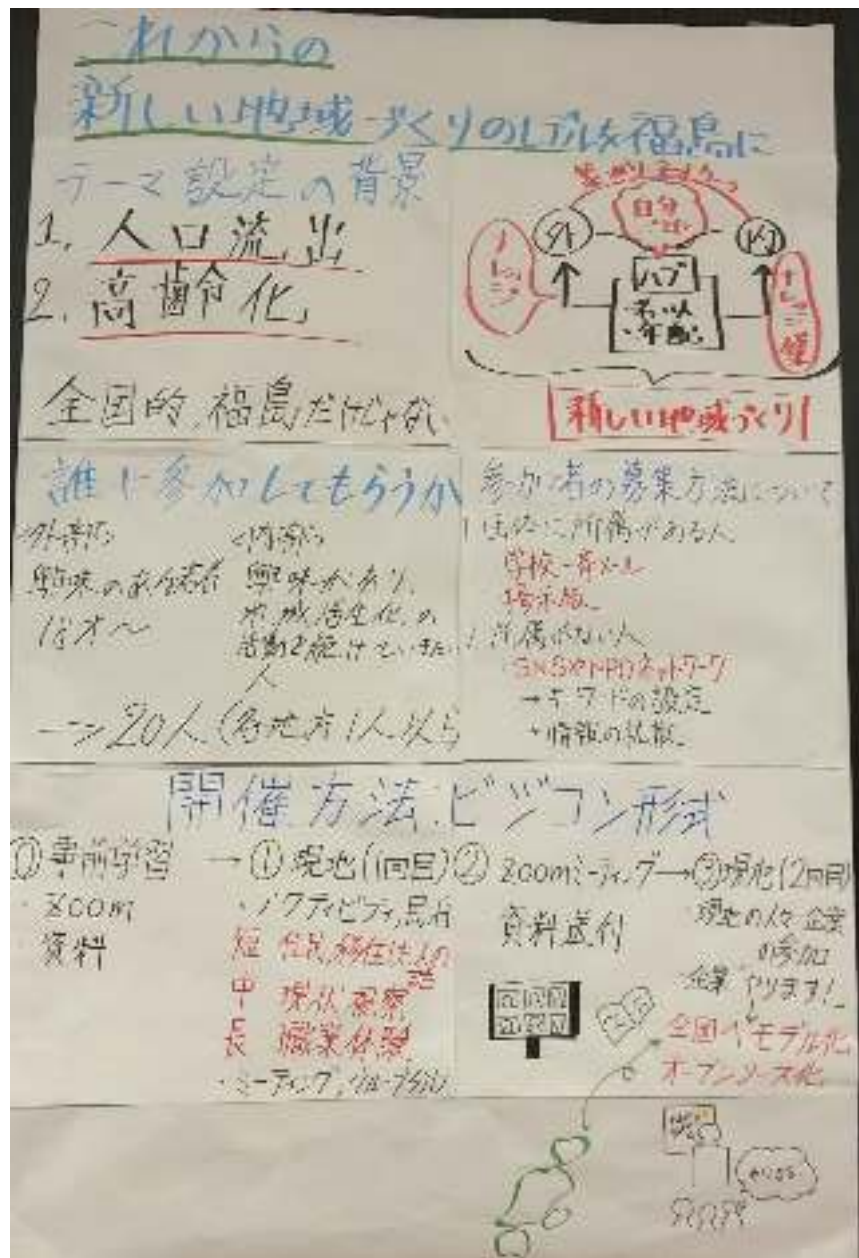 これからの
新しい地域づくりのモデルを福島に
テーマ設定の背景
1. 人口流出
2. 高齢化
全国的、福島だけじゃない
外
内
自分
ハブ
・若い人
・年配
ナレッジ
新しい地域づくり
誰に参加してもらうか
<外部>
興味のある若者
18才〜
<内部>
興味があり、
地域活性化の
活動を続けていきたい
人
→20人(各地方1人以上
参加者の募集方法について
団体に所属がある人
学校一斉メール
掲示板
所属がない人
SNSやNPOネットワーク
→キーワードの設定
情報の拡散
開催方法:ビジコン形式
⓪事前学習
・ZOOM
・資料
→①現地(1回目)
・アクティビティ,民泊
短 住民,移住された人の話
中 現状視察
長 職業体験
・ミーティング,グループ分け
②ZOOMミーティング
資料送付
→③現地(2回目)
現地の人々・企業
の参加
企業"やります!"
全国へモデル化
オープンソース化